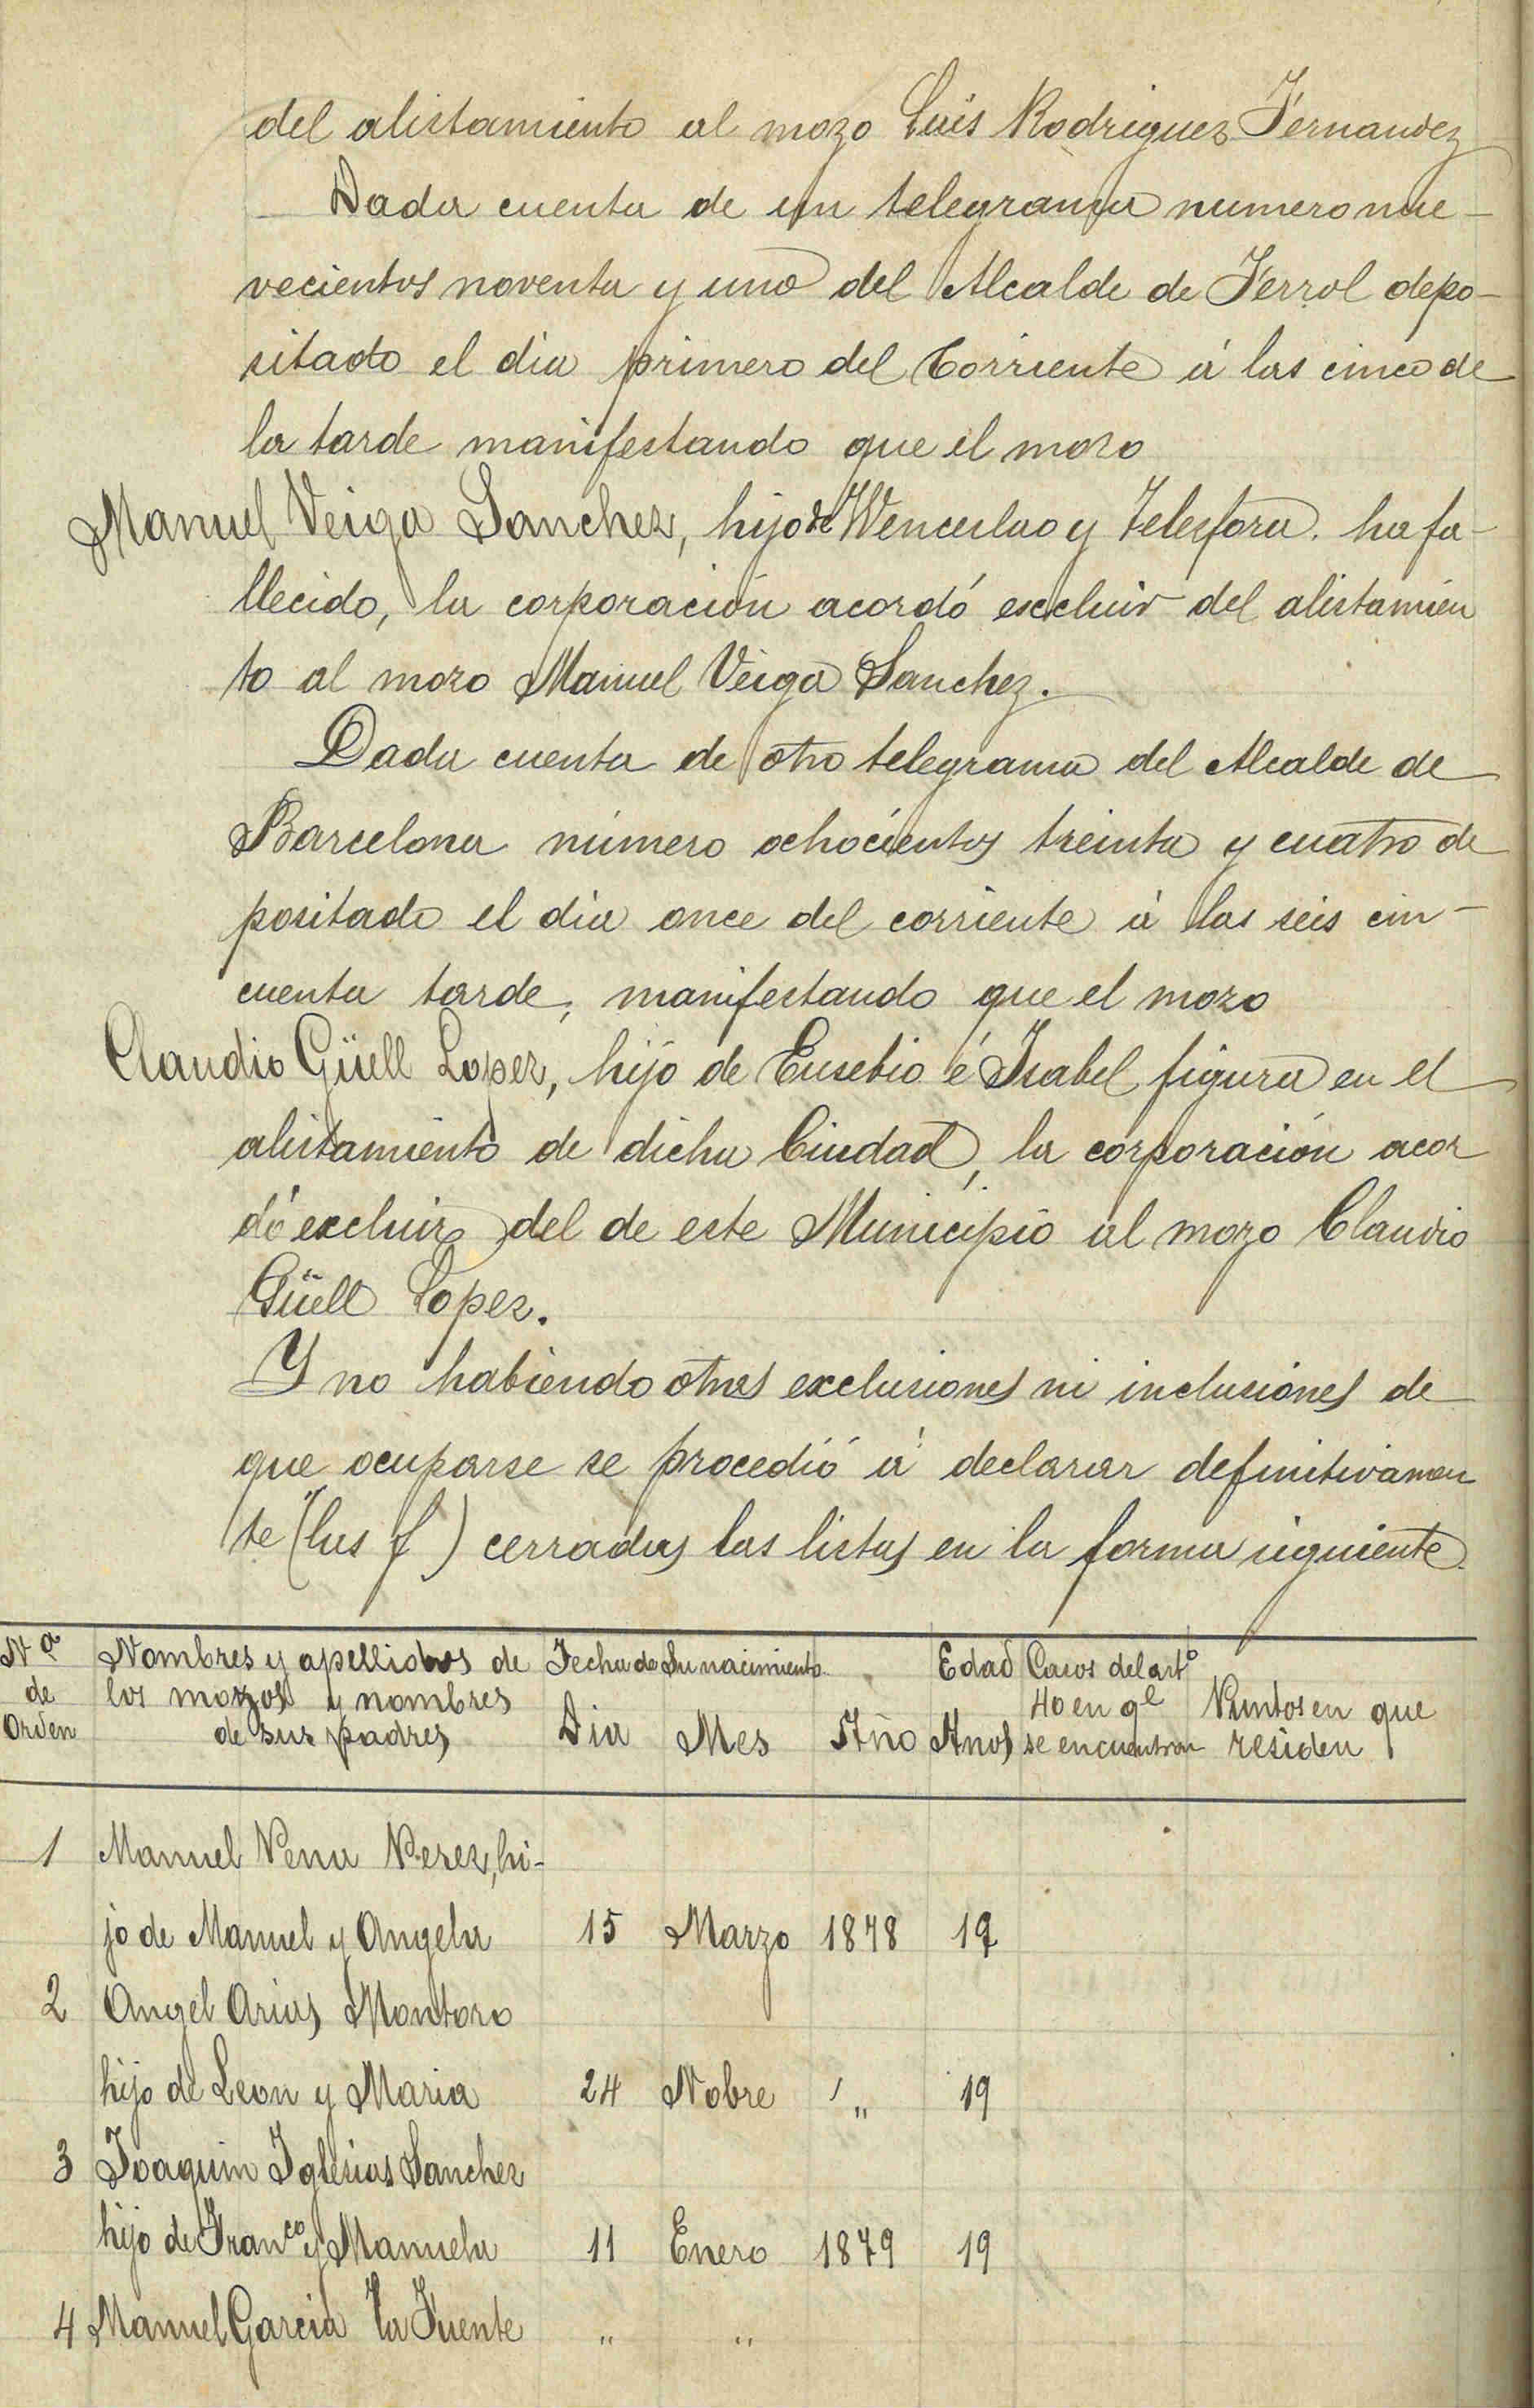 del alistamiento al mozo Luis Rodriguez Fernandez
Dada cuenta de un telegrama numero nue-
vecientos noventa y uno del Alcalde de Ferrol depo-
sitado el dia primero del Corriente á las cinco de
la tarde manifestando que el mozo
Manuel Veiga Sanchez, hijo de Wenceslao y Telesfora. ha fa-
llecido, la corporación acordó escluir del alistamien
to al mozo Manuel Veiga Sanchez.
Dada cuenta de otro telegrama del Alcalde de
Barcelona número ochocientos treinta y cuatro de
positado el dia once del corriente á las seis cin-
cuenta tarde, manifestando que el mozo
Claudio Güell Lopez, hijo de Eusebio é Isabel figura en el
alistamiento de dicha Ciudad, la corporación acor
dó excluir del de este Municipio al mozo Claudio
Güell Lopez.
Y no habiendo otras exclusiones ni inclusiones de
que ocuparse se procedió á declarar definitivamen
te (las f) cerradas las listas en la forma siguiente.
Nº de Orden | Nombres y apellidos de los mozos y nombres de sus padres | Fecha de Su nacimiento Dia Mes Año | Edad Años | Casos del artº 40 en qe se encuentran | Puntos en que residen
1 Manuel Pena Perez, hi-
jo de Manuel y Angela 15 Marzo 1878 19
2 Angel Arias Montoro
hijo de Leon y Maria 24 Nobre " 19
3 Joaquin Iglesias Sanchez
hijo de Franco y Manuela 11 Enero 1879 19
4 Manuel Garcia La Fuente " "